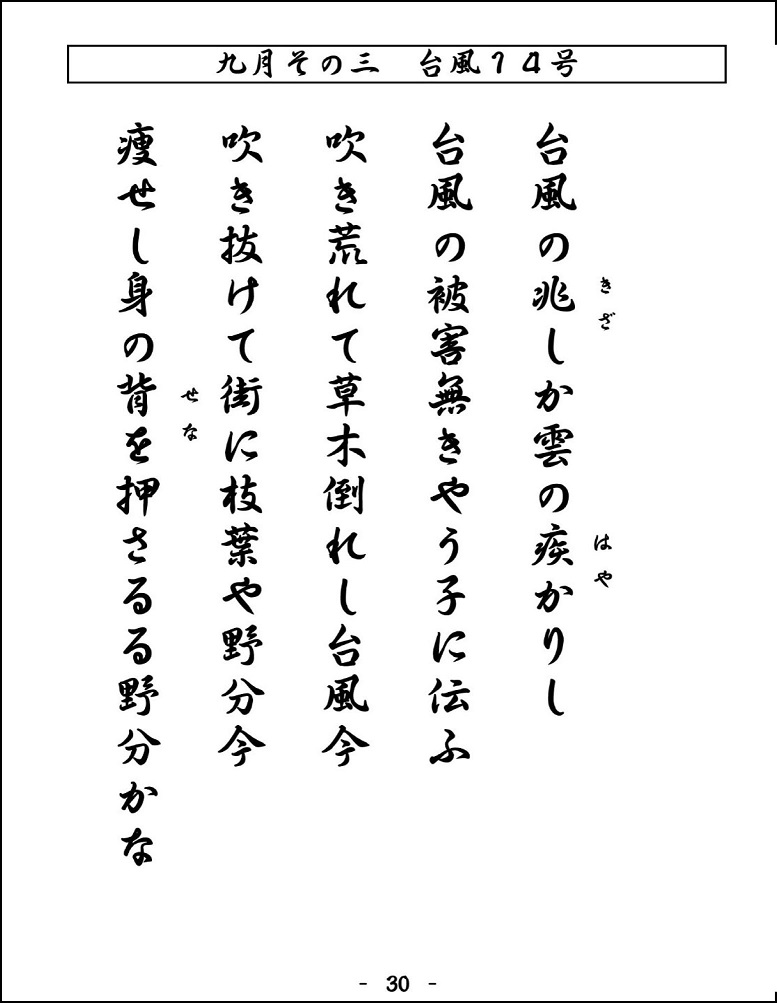 九月その三　台風14号
台風の兆しか雲の疾かりし
きざ
はや
台風の被害無きやう子に伝ふ
吹き荒れて草木倒れし台風今
吹き抜けて街に枝葉や野分今
痩せし身の背を押さるる野分かな
せな
- 30 -